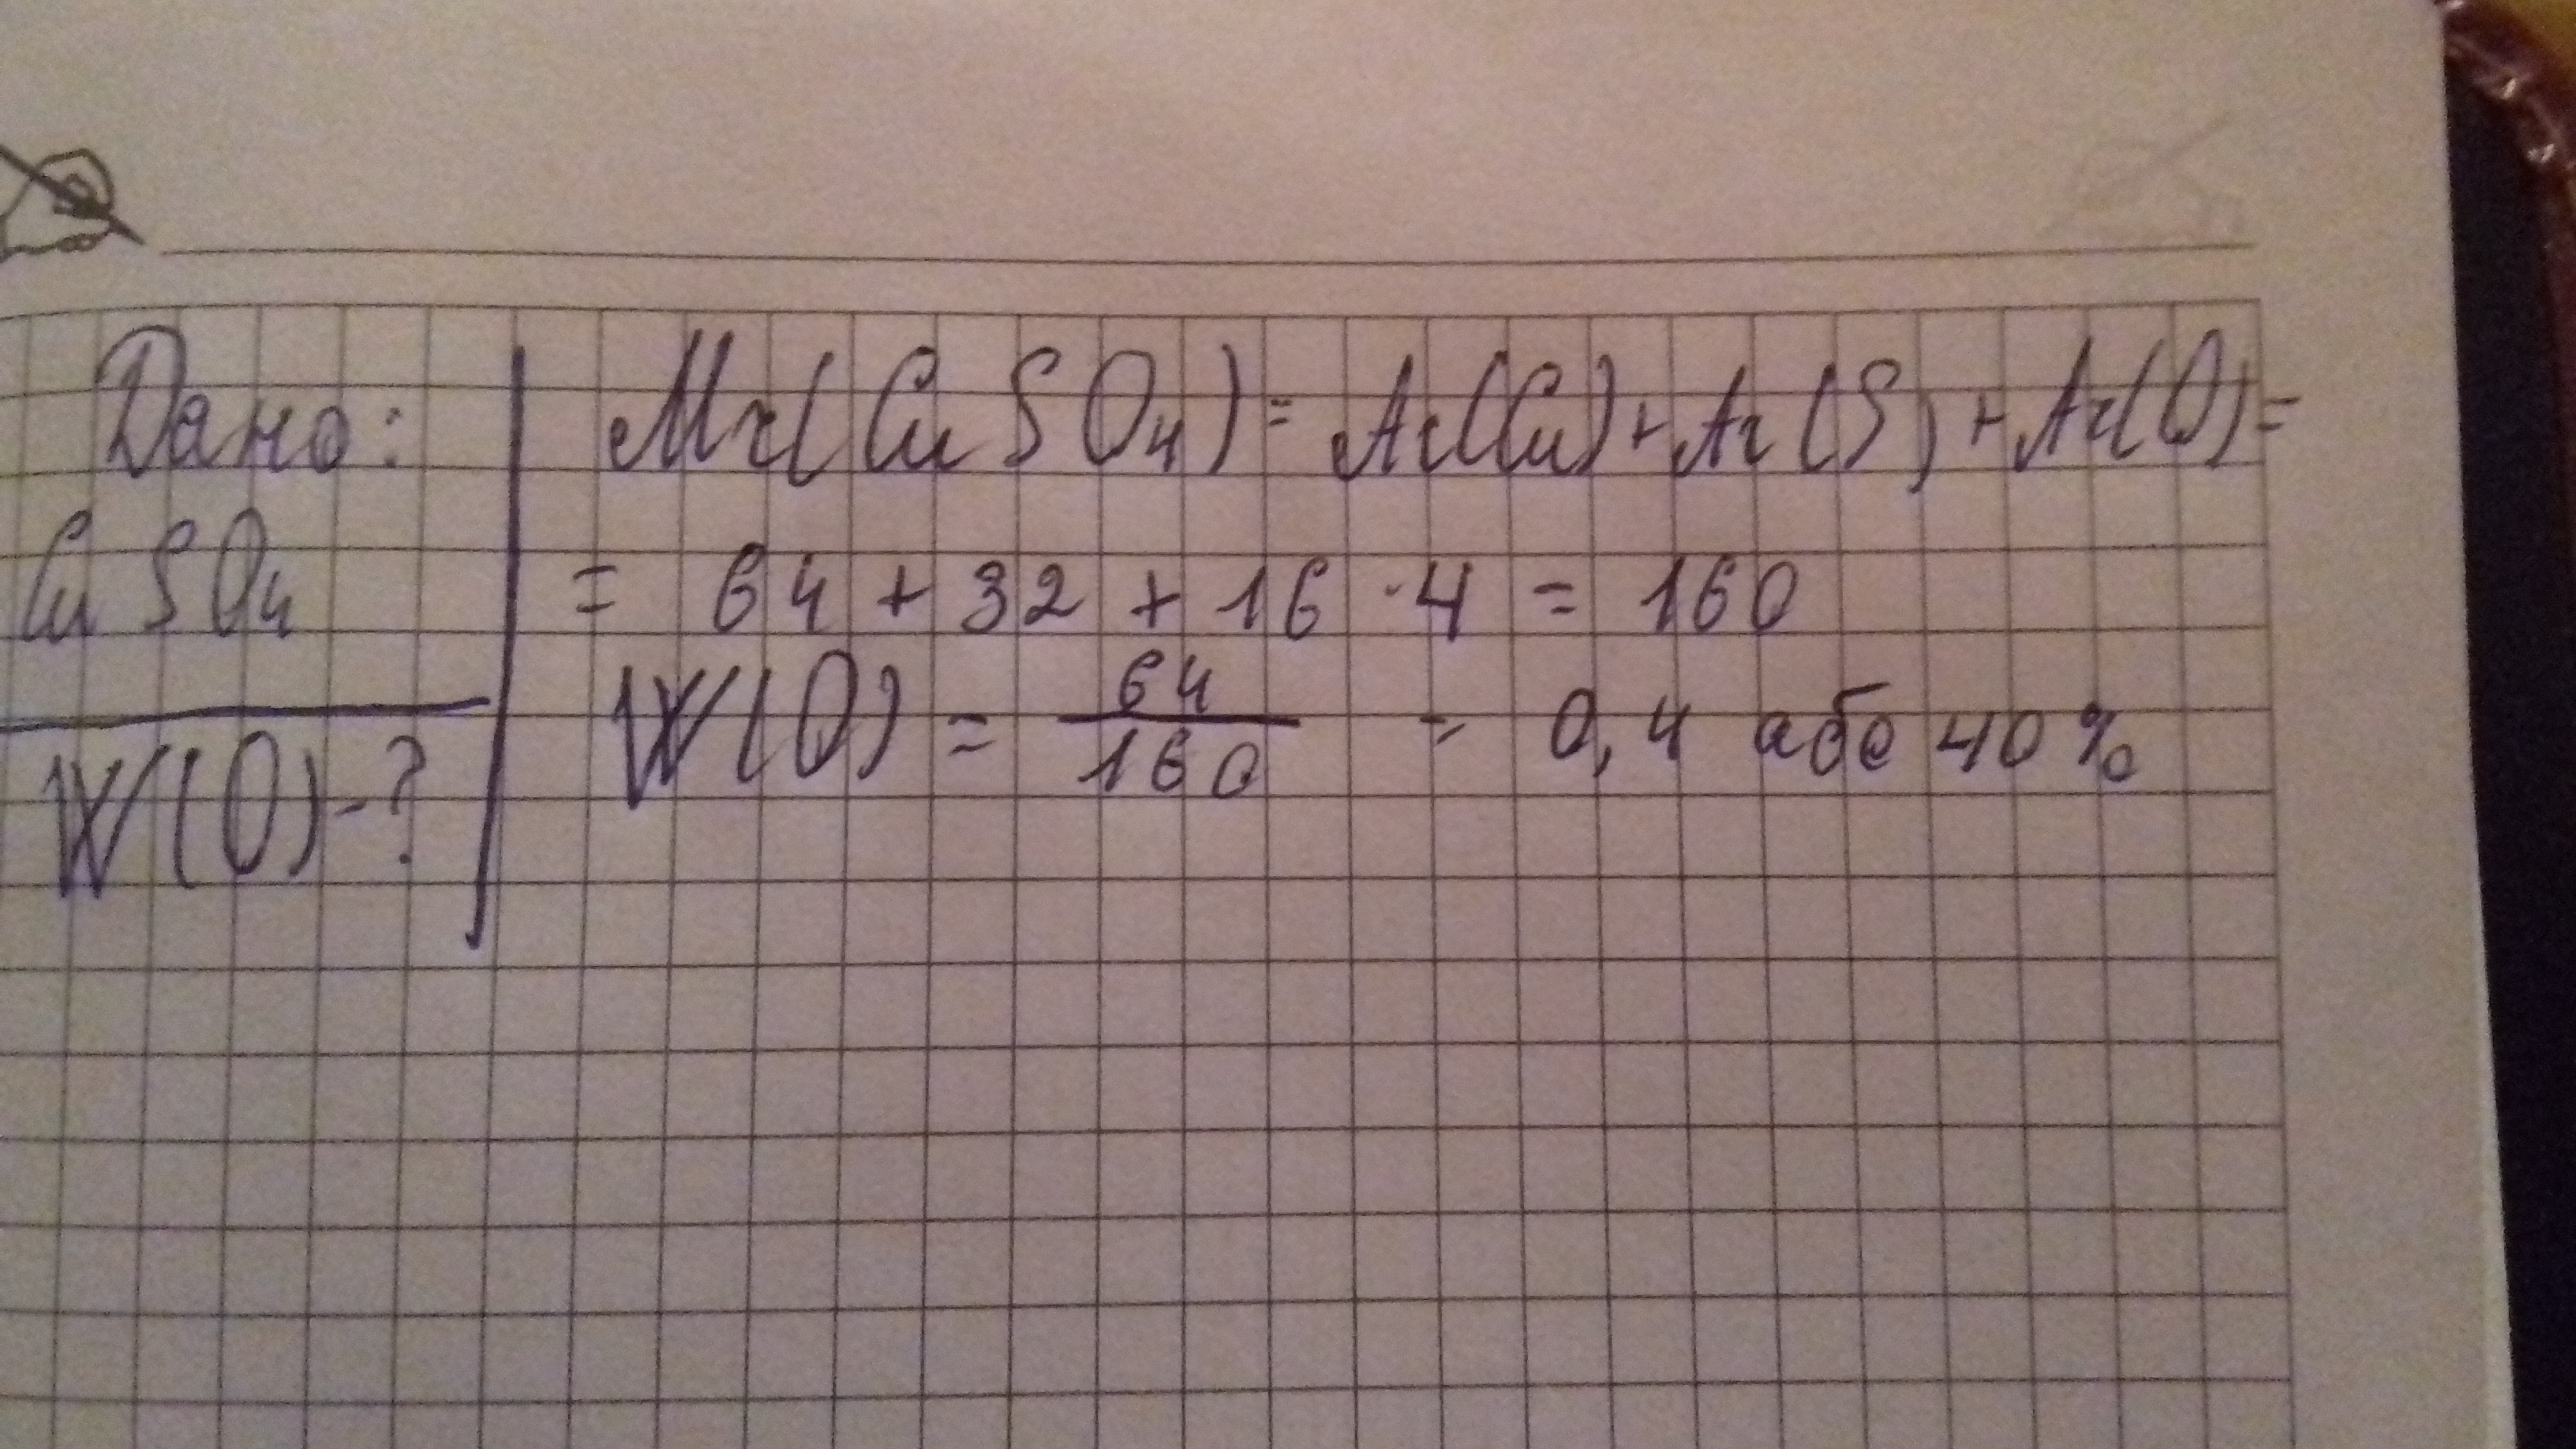 Дано:
CuSO₄
W(O)-?
Mr(CuSO₄)= Ar(Cu)+Ar(S)+Ar(O)=
= 64 + 32 + 16 · 4 = 160
W(O) = 64/160 = 0,4 або 40%